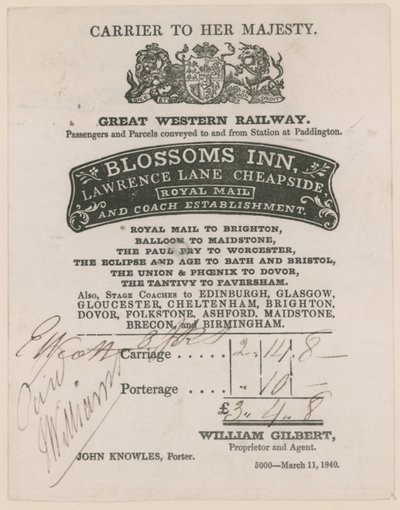 CARRIER TO HER MAJESTY.
GREAT WESTERN RAILWAY.
Passengers and Parcels conveyed to and from Station at Paddington.
BLOSSOMS INN,
LAWRENCE LANE CHEAPSIDE,
ROYAL MAIL
AND COACH ESTABLISHMENT.
ROYAL MAIL TO BRIGHTON,
BALLOON TO MAIDSTONE,
THE PAUL PRY TO WORCESTER,
THE ECLIPSE AND AGE TO BATH AND BRISTOL,
THE UNION & PHŒNIX TO DOVOR,
THE TANTIVY TO FAVERSHAM.
Also, STAGE COACHES to EDINBURGH, GLASGOW,
GLOUCESTER, CHELTENHAM, BRIGHTON,
DOVOR, FOLKSTONE, ASHFORD, MAIDSTONE,
BRECON, and BIRMINGHAM.
Carriage ..... 2 " 14 " 8 —
Porterage ..... " 10 " —
£3 " 4 " 8
Paid
JWilliams
WILLIAM GILBERT,
Proprietor and Agent.
JOHN KNOWLES, Porter.
5000—March 11, 1840.